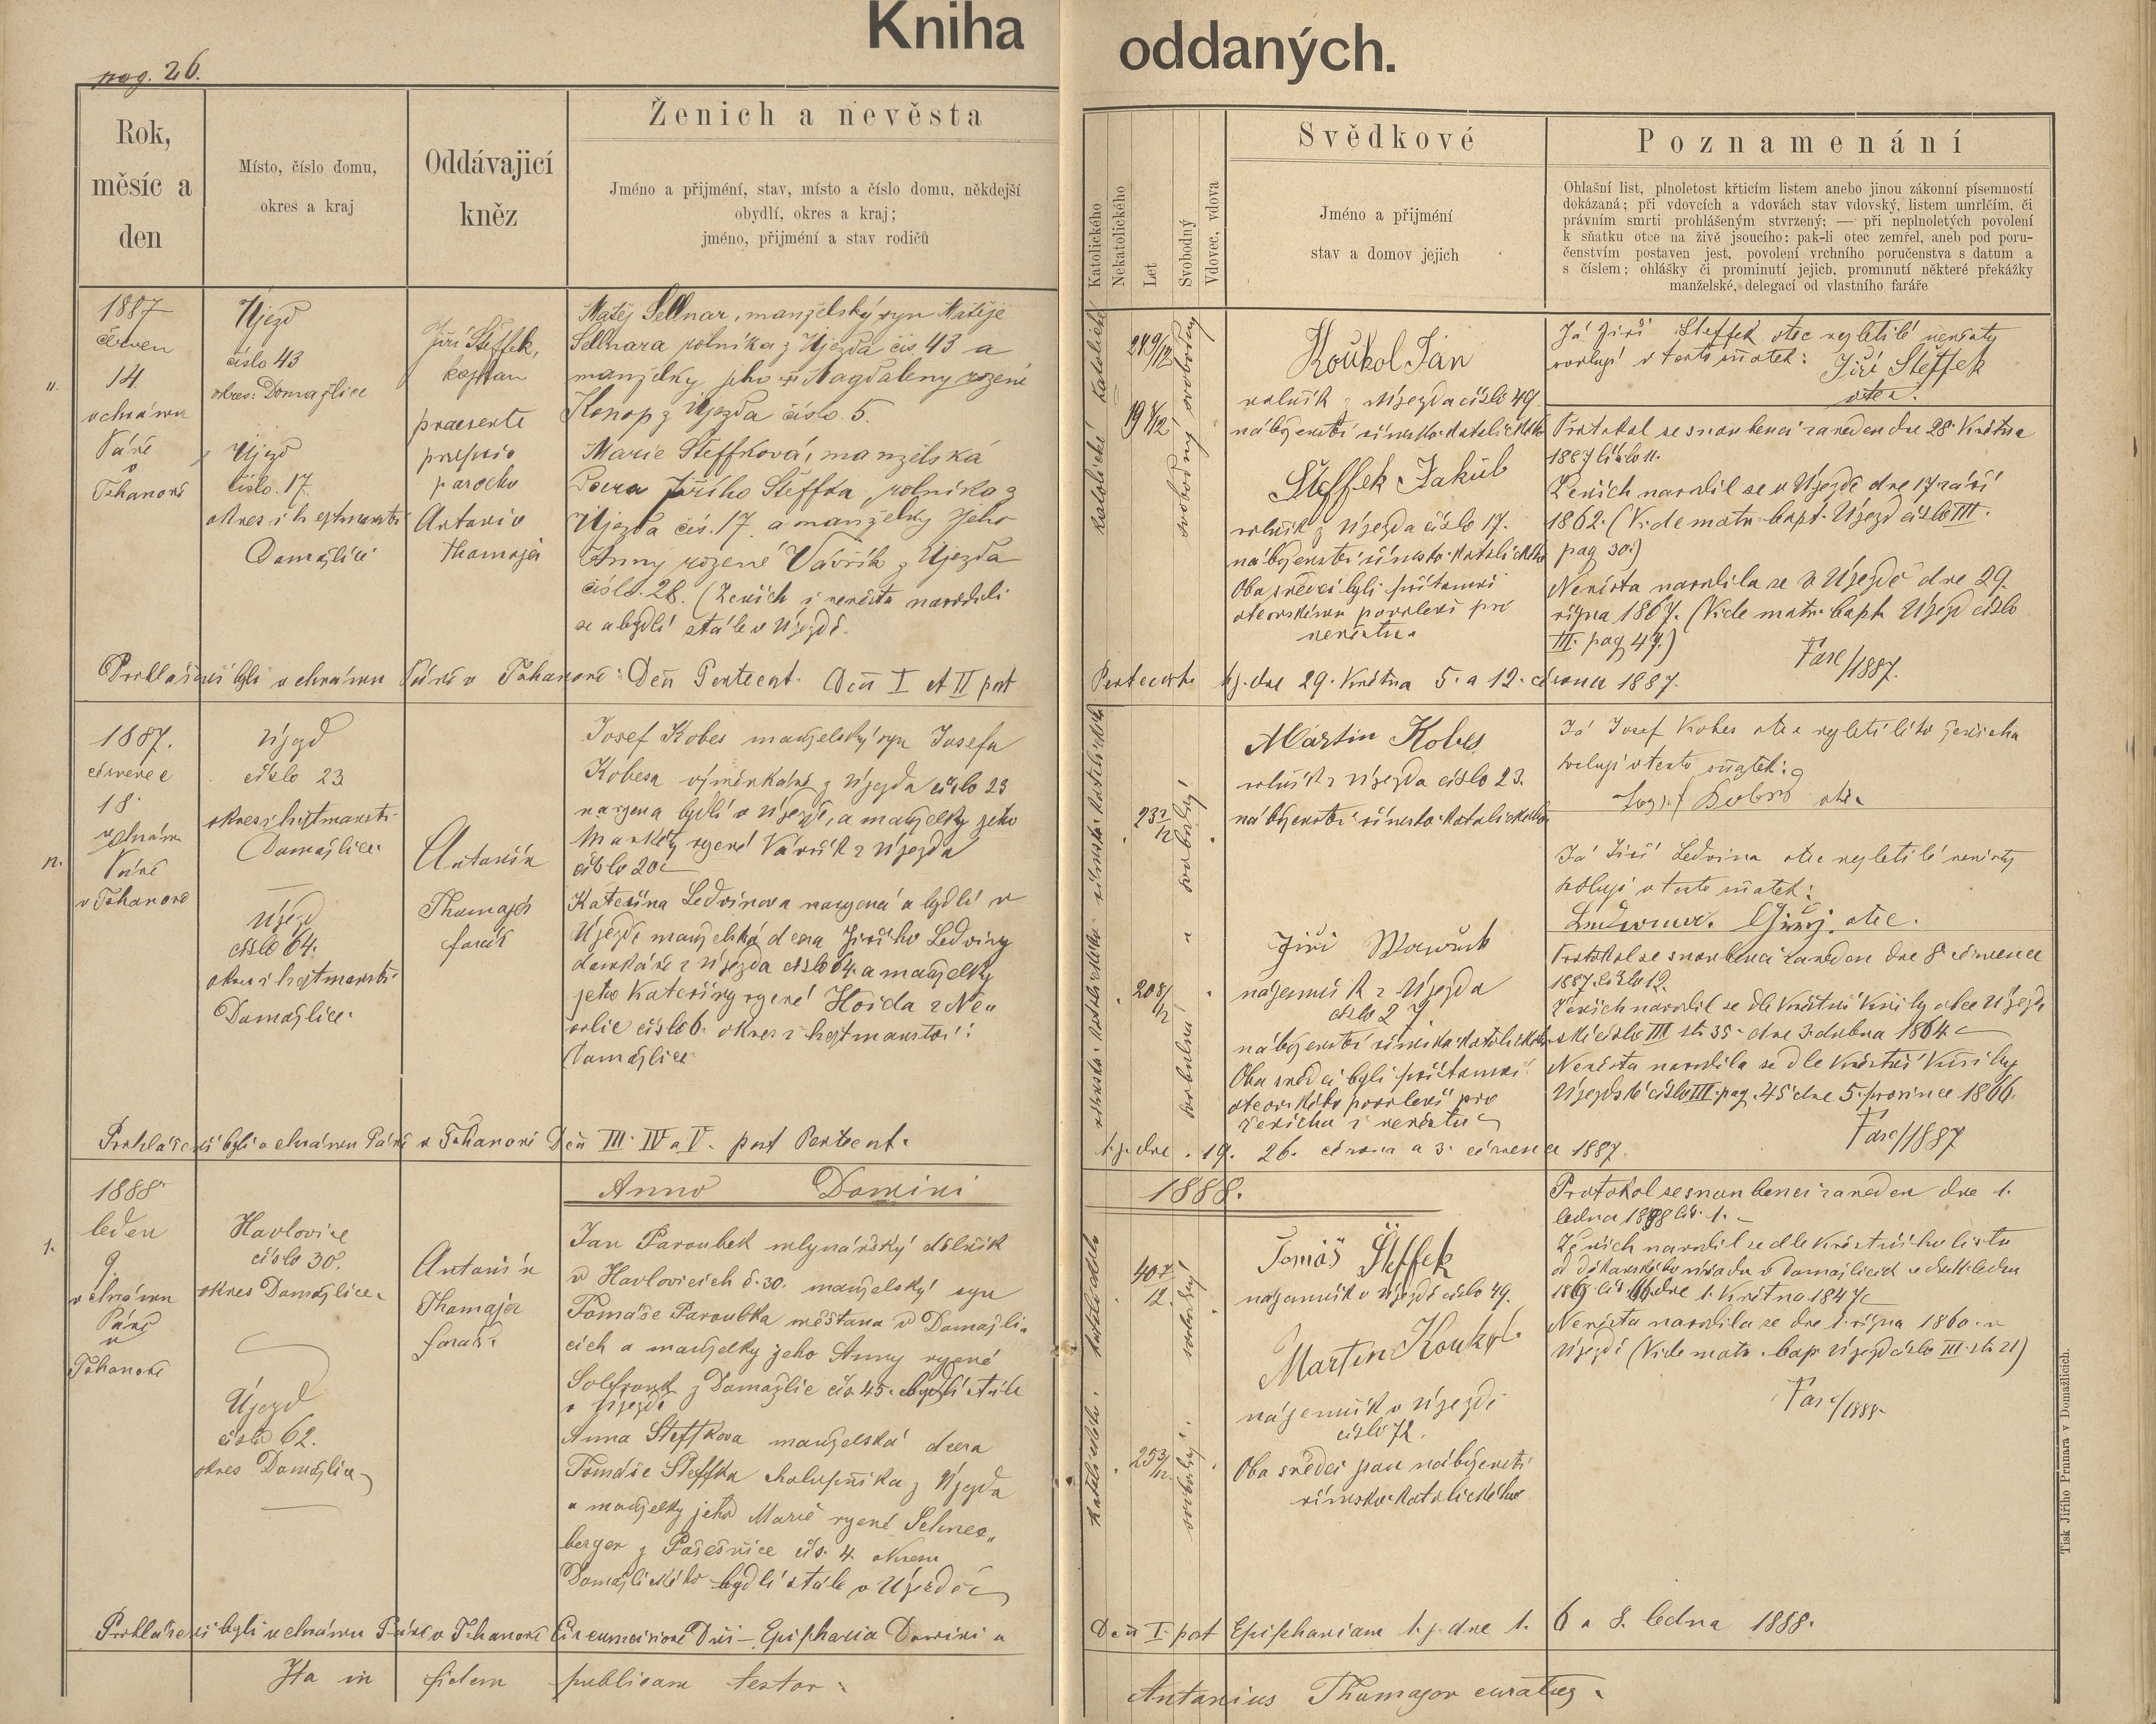 Kniha oddaných.
pag. 26.
Rok,
měsíc a
den
Místo, číslo domu,
okres a kraj
Oddávající
kněz
Ženich a nevěsta
Jméno a přijmení, stav, místo a číslo domu, někdejší
obydlí, okres a kraj;
jméno, přijmení a stav rodičů
Katolického
Nekatolického
Let
Svobodný
Vdovec, vdova
Svědkové
Jméno a přijmení
stav a domov jejich
Poznamenání
Ohlašní list, plnoletost křticím listem anebo jinou zákonní písemností
dokázaná; při vdovcích a vdovách stav vdovský, listem umrlčím, či
právním smrti prohlášeným stvrzený; — při neplnoletých povolení
k sňatku otce na živě jsoucího: pak-li otec zemřel, aneb pod poru-
čenstvím postaven jest, povolení vrchního poručenstva s datum a
s číslem; ohlášky či prominutí jejich, prominutí některé překážky
manželské, delegací od vlastního faráře
11.
1887
červen
14.
v chrámu
Páně
v
Tohanově
Újezd
číslo 43
okres: Domažlice
Újezd
číslo. 17.
okres i hejtmanství
Domažlice
Jiří Šteffek,
kaplan
praesente
proprio
parocho
Antonio
Thamajer
Matěj Sellnar, manželský syn Matěje
Sellnara rolníka z Újezda čís 43 a
manželky jeho Magdaleny rozené
Konop z Újezda číslo. 5.
Marie Šteffková, manželská
Dcera Jiřího Šteffka, rolníka z
Újezda čís. 17. a manželky jeho
Anny rozené Vavřík z Újezda
číslo. 28. (Ženich i nevěsta narodili
se a bydlí stále v Újezdě.
katolické katolické
24 9/12
svobodný svobodný
Koukol Jan
rolník z Újezda číslo 49
náboženství římsko-katolického
Šteffek Jakub
rolník z Újezda číslo 17.
náboženství římsko-katolického
Oba svědci byli přítomni
otcovskému povolení pro
nevěstu.
Já Jiří Steffek otec nezletilé nevěsty
svoluji v tento sňatek: Jiří Šteffek
otec.
Protokol se snoubenci zaveden dne 28. Května
1887 číslo 11.
Ženich narodil se v Újezdě dne 17 září
1862. (Vide matr. bapt. Újezd číslo III.
pag 30.)
Nevěsta narodila se v Újezdě dne 29.
října 1867. (Vide matr. bapt. Újezd číslo
III. pag 47.)
Fasc/1887.
Prohlášeni byli v chrámu Páně v Tohanově: Dcã Pentecost. Dcã I et II post Pentecost. t.j. dne 29. Května 5. a 12. června 1887.
12.
1887.
červenec
18.
v chrám
Páně
v Tohanově
Újezd
číslo 23
okres i hejtmanství
Domažlice
Újezd
číslo 64.
okres i hejtmanství
Domažlice.
Antonín
Thamajer
farář
Josef Kobes manželský syn Josefa
Kobesa výměnkáře z Újezda číslo 23
narozen a bydlí v Újezdě, a manželky jeho
Markéty rozené Vavřík z Újezda
číslo 20
Kateřina Ledvinova narozená a bydlí v
Újezdě manželská dcera Jiřího Ledviny
domkáře z Újezda číslo 64. a manželky
jeho Kateřiny rozené Hojda z Ne-
volic číslo 6. okres i hejtmanství:
Domažlice
23 3/12
20 8/12
Martin Kobes
rolník z Újezda číslo 23.
náboženství římsko-katolického
Jiří Wawřich
nájemník z Újezda
číslo 27
náboženství římsko-katolického
Oba svědci byli přítomni
otcovského povolení pro
ženicha i nevěstu
Já Josef Kobes otec nezletilého ženicha
svoluji v tento sňatek:
Josef Kobes otec
Já Jiří Ledvina otec nezletilé nevěsty
svoluji v tento sňatek:
Ledwina. Giřj. otec.
Protokol se snoubenci zaveden dne 8 července
1887. číslo 12.
Ženich narodil se dle Křestní Knihy obce Újezd-
ské číslo III str. 35. dne 3. dubna 1864.
Nevěsta narodila se dle Křestní Knihy
Újezdské číslo III. pag. 45 dne 5. prosince 1866.
Fasc/1887
Prohlášeni byli v chrámu Páně v Tohanově Dcã III. IV a V. post Pentecost. t.j. dne 19. 26. června a 3. července 1887.
Anno Domini 1888.
1.
1888
leden
9.
v chrámu
Páně
v
Tohanově
Havlovice
číslo 30.
okres Domažlice
Újezd
číslo 62.
okres Domažlice
Antonín
Thamajer
farář.
Jan Paroubek mlynářský dělník
v Havlovicích č. 30. manželský syn
Tomáše Paroubka měšťana v Domažli-
cích a manželky jeho Anny rozené
z Domažlic čís. 45. bydlí stále
v Újezdě
Anna Šteffkova manželská dcera
Tomáše Šteffka chalupníka z Újezda
a manželky jeho Marie rozené Schnee-
berger z Pasečnice čís. 4 okresu
Domažlického bydlí stále v Újezdě
40 7/12.
25 3/12.
Tomáš Šteffek
nájemník v Újezdě číslo 49.
Martin Koukol
nájemník v Újezdě
číslo 72.
Oba svědci jsou náboženství
římsko-katolického
Protokol se snoubenci zaveden dne 1.
ledna 1888 čís. 1.
Ženich narodil se dle křestního listu
od děkanského úřadu v Domažlicích
dne 1. Května 1847
Nevěsta narodila se dne 1. října 1860. v
Újezdě (Vide matr. bap. Újezd číslo III. str. 21)
Fasc/1888.
Prohlášeni byli v chrámu Páně v Tohanově Circumcisione Dñi – Epiphania Domini a Dcã I. post Epiphaniam t.j. dne 1. 6 a 8. ledna 1888.
Ita in fidem publicam testor. Antonius Thamajer curatus.
Tisk Jiřího Prunara v Domažlicích.